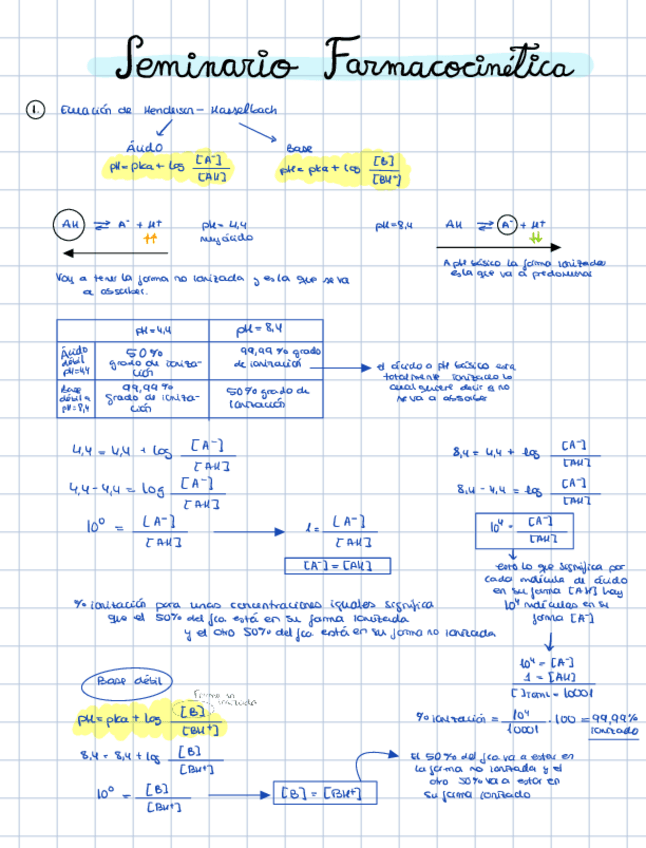 Seminario Farmacocinética
1. Ecuación de Henderson-Hasselbach
Ácido
Base
pH = pka + log [A⁻]/[AH]
pH = pka + log [B]/[BH⁺]
AH ⇌ A⁻ + H⁺
pH = 4,4
muy ácido
pH = 8,4
AH ⇌ A⁻ + H⁺
↑↑
↓↓
Voy a tener la forma no ionizada y es la que se va
a absorber.
A pH básico la forma ionizada
es la que va a predominar
pH = 4,4
pH = 8,4
Ácido
débil
pH=4,4
50%
grado de ioniza-
ción
99,99% grado
de ionización
Base
débil a
pH=8,4
99,99%
grado de ioniza-
ción
50% grado de
ionización
el ácido a pH básico está
totalmente ionizado lo
cual quiere decir q no
se va a absorber
4,4 = 4,4 + log [A⁻]/[AH]
4,4 - 4,4 = log [A⁻]/[AH]
10⁰ = [A⁻]/[AH]
1 = [A⁻]/[AH]
[A⁻] = [AH]
8,4 = 4,4 + log [A⁻]/[AH]
8,4 - 4,4 = log [A⁻]/[AH]
10⁴ = [A⁻]/[AH]
esto lo que significa por
cada molécula de ácido
en su forma [AH] hay
10⁴ moléculas en su
forma [A⁻]
% ionización para unas concentraciones iguales significa
que el 50% del fco está en su forma ionizada
y el otro 50% del fco está en su forma no ionizada
10⁴ = [A⁻]
1 = [AH]
[ ]total = 10001
% ionización = 10⁴/10001 · 100 = 99,99%
ionizado
Base débil
Forma no
ionizada
pH = pka + log [B]/[BH⁺]
8,4 = 8,4 + log [B]/[BH⁺]
10⁰ = [B]/[BH⁺]
[B] = [BH⁺]
El 50% del fco va a estar en
la forma no ionizada y el
otro 50% va a estar en
su forma ionizado